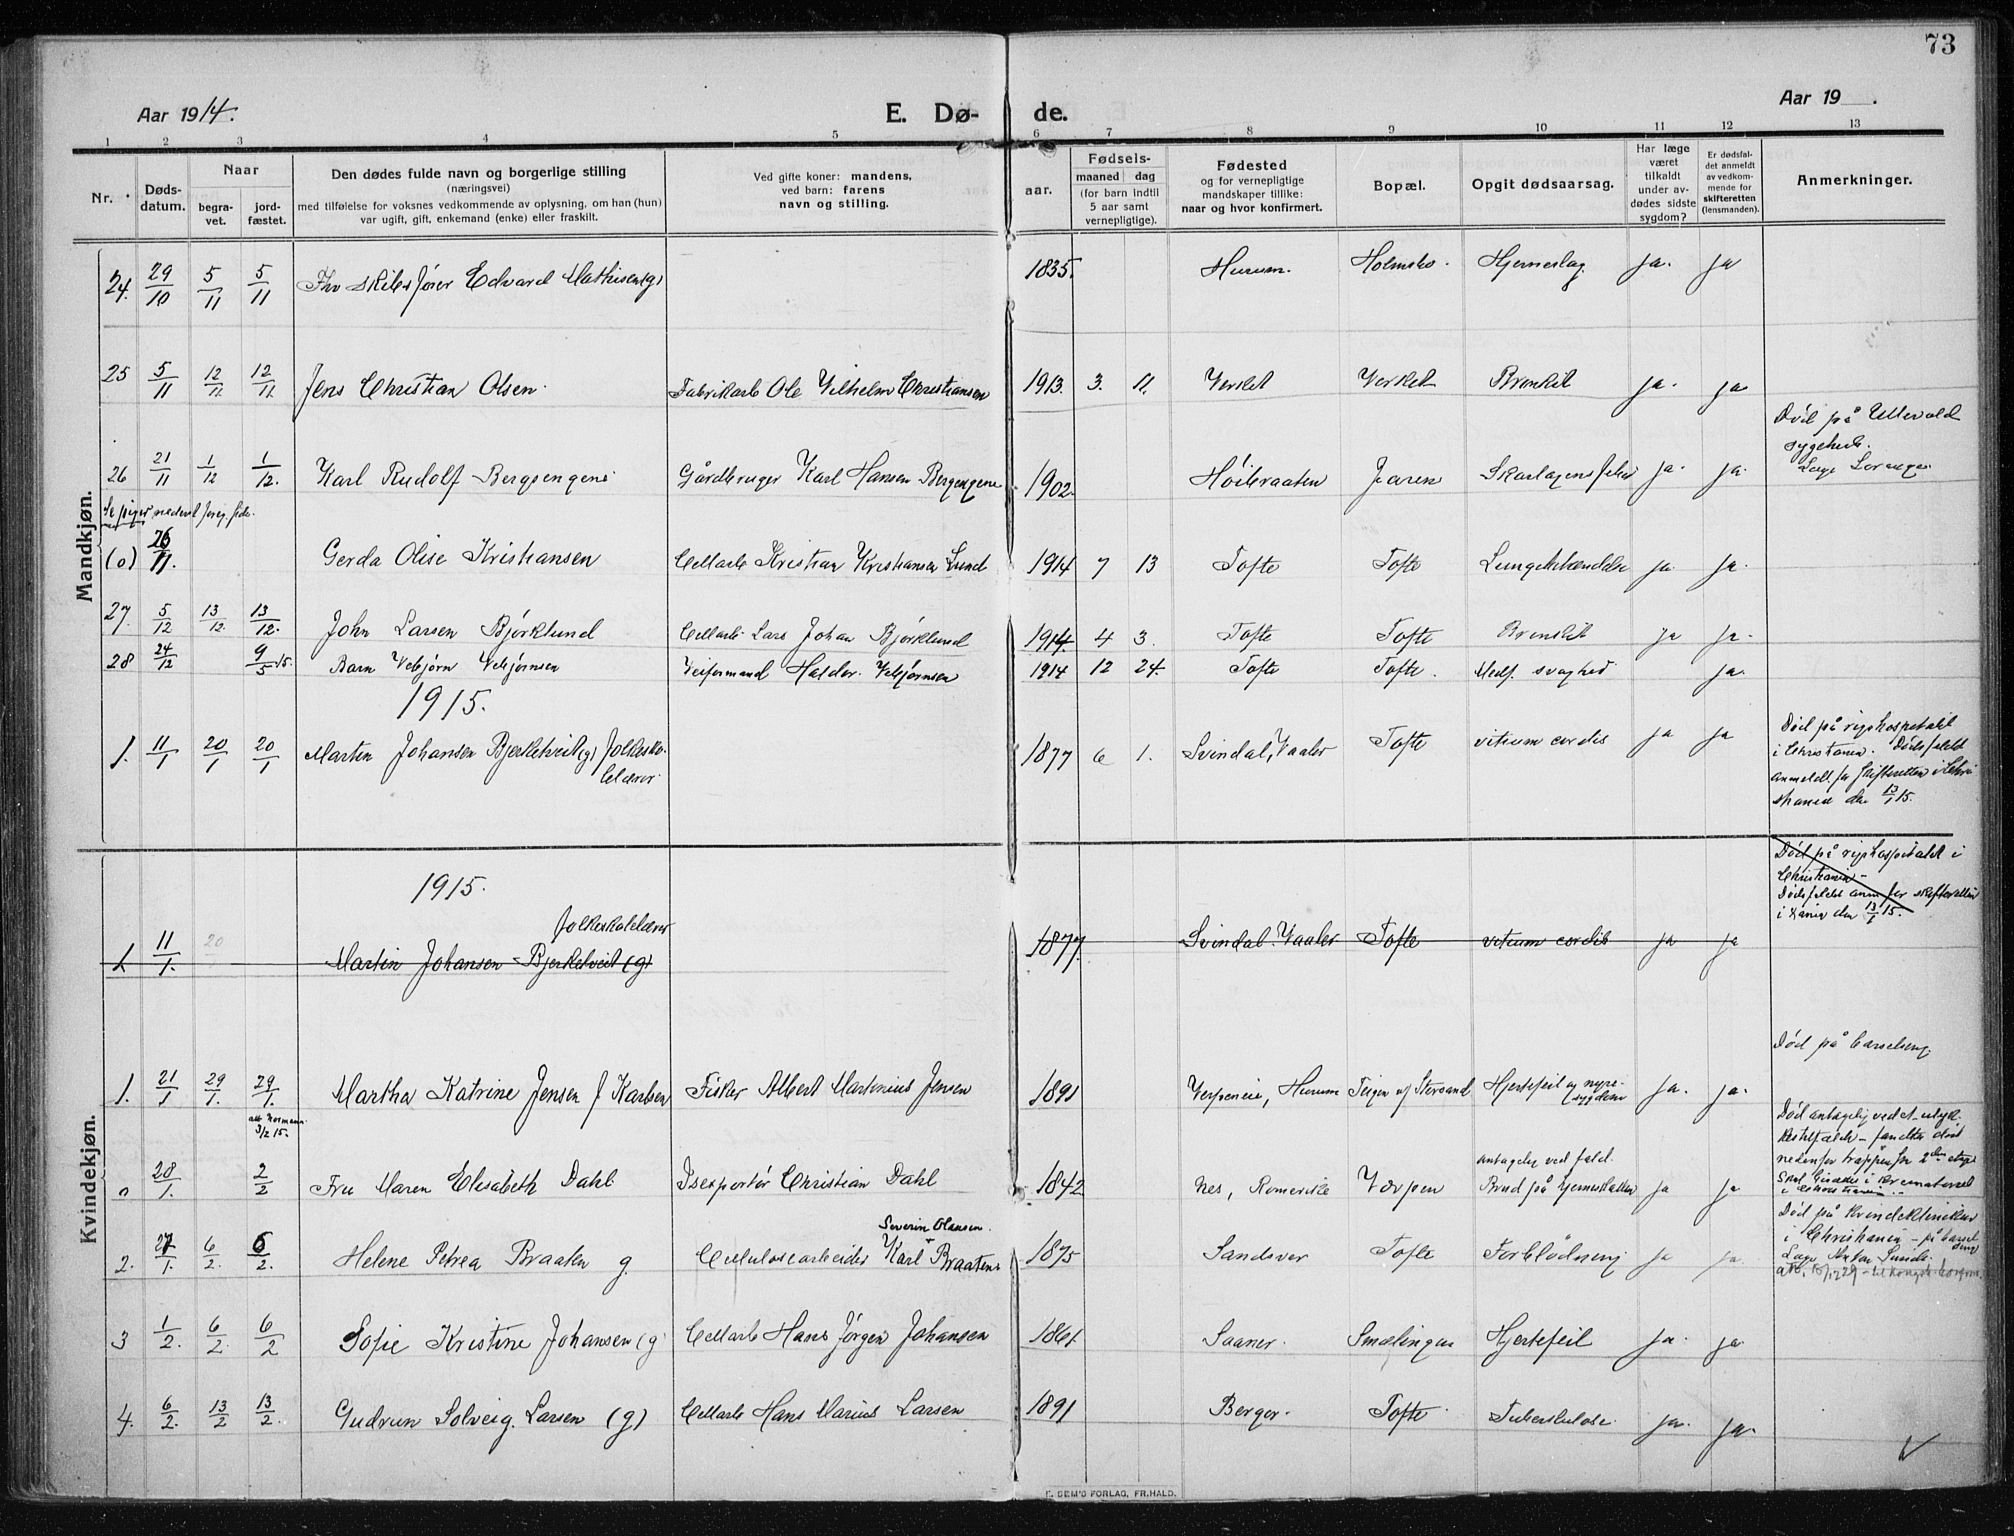 73
Aar 1914.
E. Dø-
de.
Aar 19 .
1 2 3 4 5 6 7 8 9 10 11 12 13
Nr.
Døds-
datum.
Naar
begra-
vet.
jord-
fæstet.
Den dødes fulde navn og borgerlige stilling
(næringsvei)
med tilføielse for voksnes vedkommende av oplysning, om han (hun)
var ugift, gift, enkemand (enke) eller fraskilt.
Ved gifte koner: mandens,
ved barn: farens
navn og stilling.
aar.
Fødsels-
maaned dag
(for barn indtil
5 aar samt
vernepligtige).
Fødested
og for vernepligtige
mandskaper tillike:
naar og hvor konfirmert.
Bopæl.
Opgit dødsaarsag.
Har læge
været
tilkaldt
under av-
dødes sidste
sygdom?
Er dødsfal-
det anmeldt
av vedkom-
mende for
skifteretten
(lensmanden).
Anmerkninger.
Mandkjøn.
24. 29/10 5/11 5/11 Fhv Skibsfører Edvard Mathisen (g) 1835. Hurum. Holmsbo. Hjerneslag ja. ja
25 5/11 12/11. 12/11. Jens Christian Olsen. Fabrikarb Ole Vilhelm Christiansen 1913. 3. 11. Verket Verket Bronkit ja. ja.
Död på Ullevold
sygehus.
26 21/11 1/12 1/12. Karl Rudolf Bergsengene Gårdbruger Karl Hansen Bergengene 1902. Høibraaten Jaren Skarlagensfeber ja. ja.
(0) 26/11. Gerda Olise Kristiansen Cellarb Kristian Kristiansen Lund 1914 7 13 Tofte Tofte Lungebetændelse ja. ja.
27. 5/12 13/12. 13/12. John Larsen Bjørklund Cellarb. Lars Johan Bjørklund 1914. 4 3. Tofte Tofte Bronkit ja ja.
28 24/12 9/5 15. Barn Vebjørn Vebjørnsen Veiformand Haldor Vebjørnsen 1914 12 24. Tofte Tofte. Medf. svaghed ja.
1915.
1. 11/1 20/1 20/1 Martin Johansen Bjerketveit (g) Folkesko-
lelærer. 1877 6 1. Svindal, Vaaler Tofte vitium cordis ja ja
Død på rigshospitalet
i Christiania. Dødsfaldet
anmeldt for skifteretten i Chri
stiania den 13/1 15.
Kvindekjøn.
1915.
Folkeskolelærer
1. 11/1. 20 Martin Johansen Bjerketveit (g) 1877. Svindal. Vaaler Tofte vitium cordis ja ja
Død på rigshospitalet i
Christiania -
Dødsfaldet anm for skifteretten
i Xania den 13/1 15.
1. 21/1 29/1. 29/1. Martha Katrine Jensen f Karlsen Fisker Albert Martinius Jensen 1891 Verpeneie, Hurum Teigen u/ Storsand Hjertefeil og nyre-
sygdom ja. ja.
Død på barselseng.
3/2 15.
0 28/1. 2/2 Fru Maren Elisabeth Dahl Isexportør Christian Dahl 1842 Nes, Romerike Verpen
antagelig ved fald.
Brud på hjerneskallen ja ja
Død antagelig ved et ulyk-
kestilfælde - fandtes død
nedenfor trappen for 2den etage
2. 27/1. 6/2. 6/2. Helene Petrea Braaten g. Cellulosearbeider Karl Braaten
Severin Olausen. 1875 Sandsvær Tofte Forblødning ja ja
Død på Kvindeklinikken
i Christiania - på barsel
seng
3 1/2. 6/2. 6/2 Sofie Kristine Johansen (g) Cellarb Hans Jørgen Johansen 1861. Saaner. Smalingen Hjertefeil Ja. ja.
4. 6/2. 13/2 13/2. Gudrun Solveig Larsen (g) Cellarb Hans Marius Larsen 1891 Berger. Tofte Tuberkulose. ja. ja.
E. SEM'S FORLAG, FR.HALD.